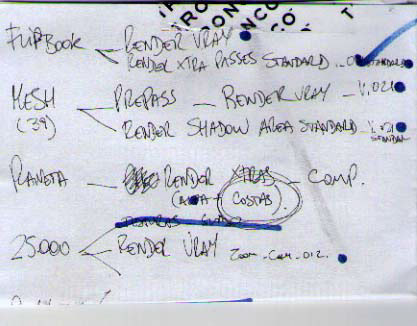 FLIPBOOK
RENDER VRAY
RENDER XTRA PASSES STANDARD
MESH
(39)
PREPASS — RENDER VRAY — V.021
RENDER SHADOW AREA STANDARD — V.021
PLANETA — RENDER XTRAS — COMP.
COSTAS)
25.000
RENDER VRAY ZOOM-CAM-012.